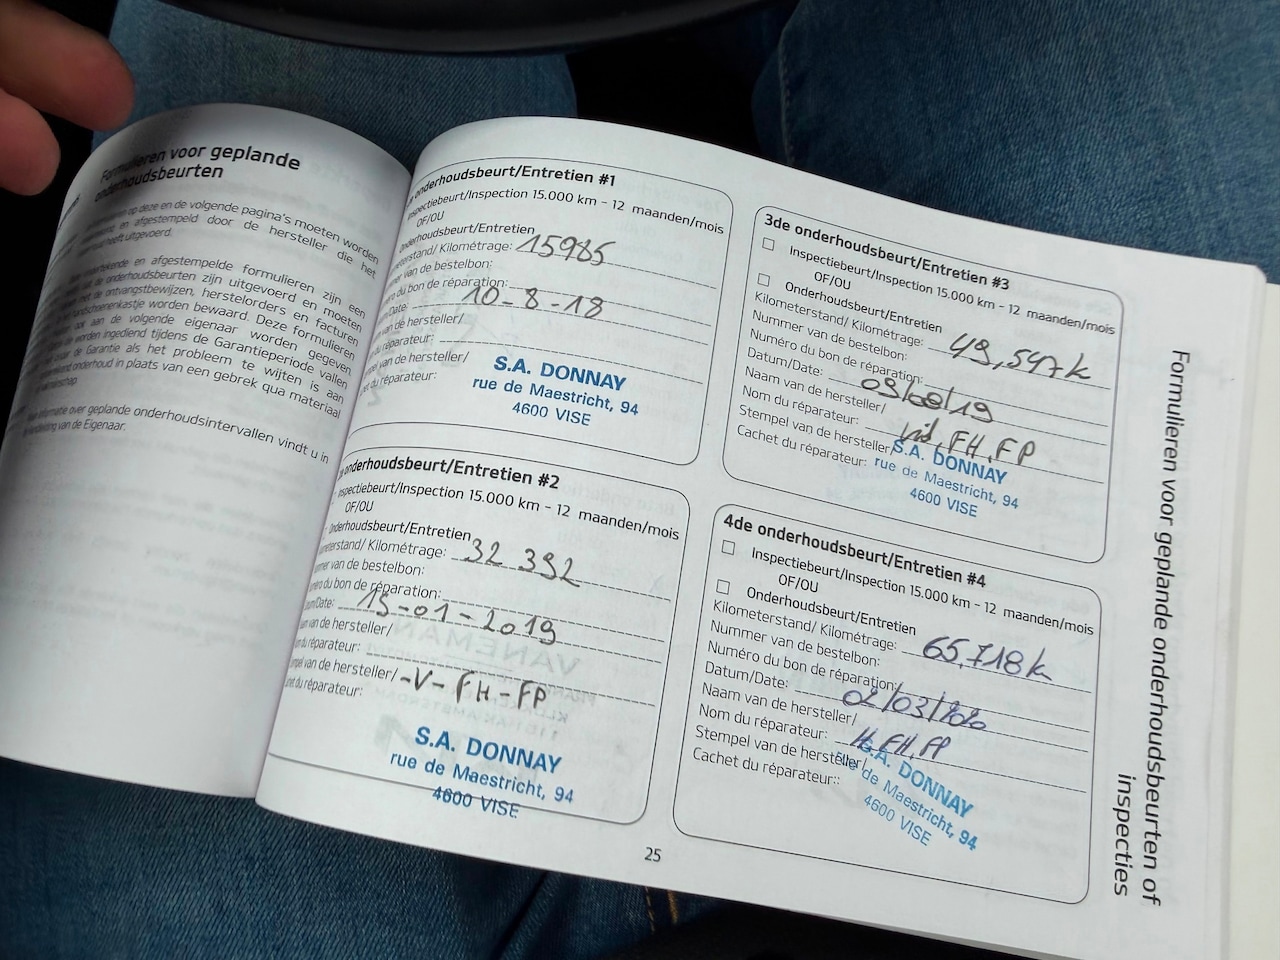 Formulieren voor geplande
onderhoudsbeurten
op deze en de volgende pagina's moeten worden
en afgestempeld door de hersteller die het
heeft uitgevoerd.
en afgestempelde formulieren zijn een
onderhoudsbeurten zijn uitgevoerd en moeten
ontvangstbewijzen, herstelorders en facturen
worden bewaard. Deze formulieren
aan de volgende eigenaar worden gegeven
worden ingediend tijdens de Garantieperiode vallen
de Garantie als het probleem te wijten is aan
onderhoud in plaats van een gebrek qua materiaal
informatie over geplande onderhoudsintervallen vindt u in
van de Eigenaar.
onderhoudsbeurt/Entretien #1
Inspectiebeurt/Inspection 15.000 km - 12 maanden/mois
OF/OU
Onderhoudsbeurt/Entretien
Kilométrage: 15985
van de bestelbon:
du bon de réparation:
Date: 10-8-18
van de hersteller/
réparateur:
van de hersteller/
réparateur:
S.A. DONNAY
rue de Maestricht, 94
4600 VISE
onderhoudsbeurt/Entretien #2
Inspectiebeurt/Inspection 15.000 km - 12 maanden/mois
OF/OU
Onderhoudsbeurt/Entretien
Kilométrage: 32 392
van de bestelbon:
du bon de réparation:
Date: 15-01-2019
van de hersteller/
réparateur:
van de hersteller/ -V-FH-FP
réparateur:
S.A. DONNAY
rue de Maestricht, 94
4600 VISE
25
3de onderhoudsbeurt/Entretien #3
Inspectiebeurt/Inspection 15.000 km - 12 maanden/mois
OF/OU
Onderhoudsbeurt/Entretien
Kilometerstand/ Kilométrage: 49,547k
Nummer van de bestelbon:
Numéro du bon de réparation:
Datum/Date: 09/08/19
Naam van de hersteller/
Nom du réparateur: FH, FP
Stempel van de hersteller/
Cachet du réparateur:
S.A. DONNAY
rue de Maestricht, 94
4600 VISE
4de onderhoudsbeurt/Entretien #4
Inspectiebeurt/Inspection 15.000 km - 12 maanden/mois
OF/OU
Onderhoudsbeurt/Entretien
Kilometerstand/ Kilométrage: 65,718k
Nummer van de bestelbon:
Numéro du bon de réparation:
Datum/Date: 02/03/2020
Naam van de hersteller/
Nom du réparateur: FH, FP
Stempel van de hersteller/
Cachet du réparateur::
S.A. DONNAY
rue de Maestricht, 94
4600 VISE
Formulieren voor geplande onderhoudsbeurten of
inspecties